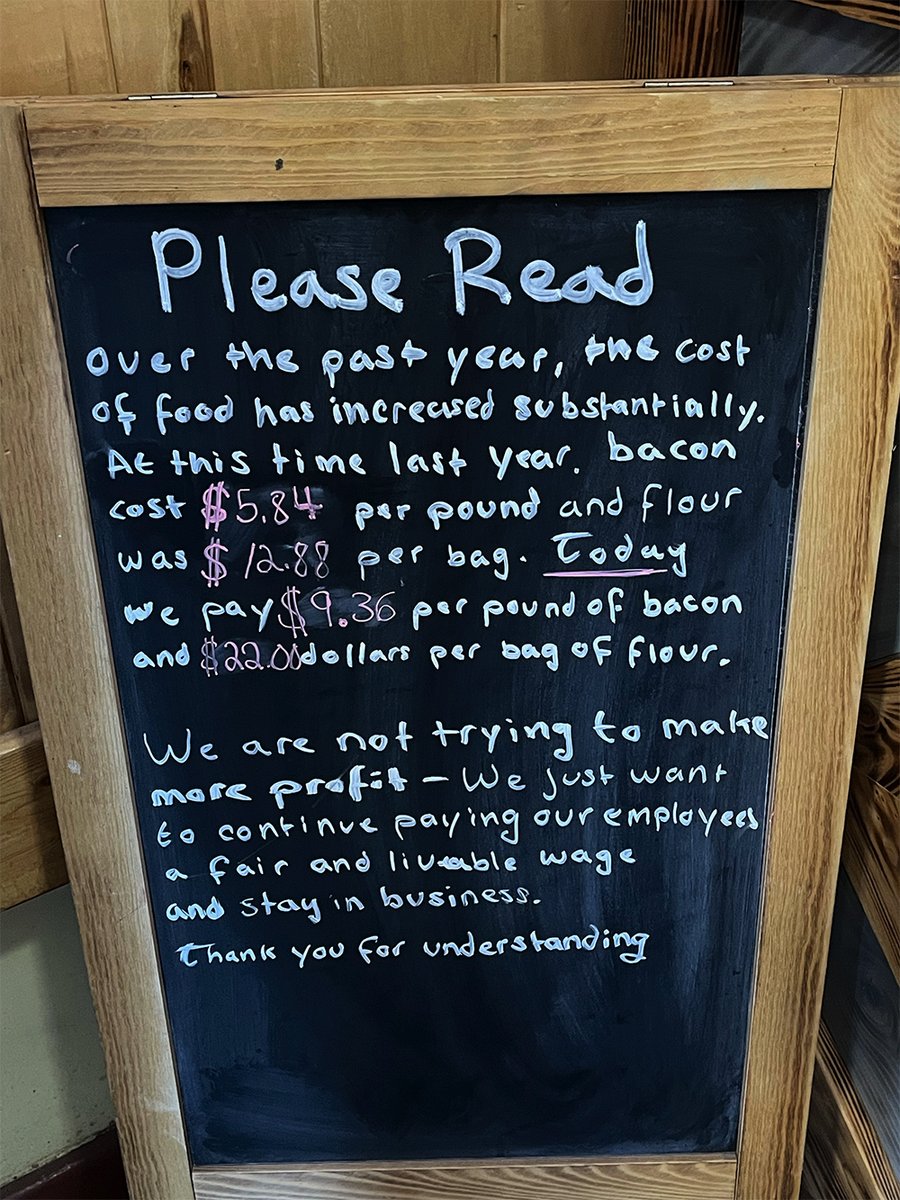 Please Read
over the past year, the cost
of food has increased substantially.
At this time last year. bacon
cost $5.84 per pound and flour
was $12.88 per bag. Today
we pay $9.36 per pound of bacon
and $22.00 dollars per bag of flour.
We are not trying to make
more profit - We just want
to continue paying our employees
a fair and liveable wage
and stay in business.
Thank you for understanding